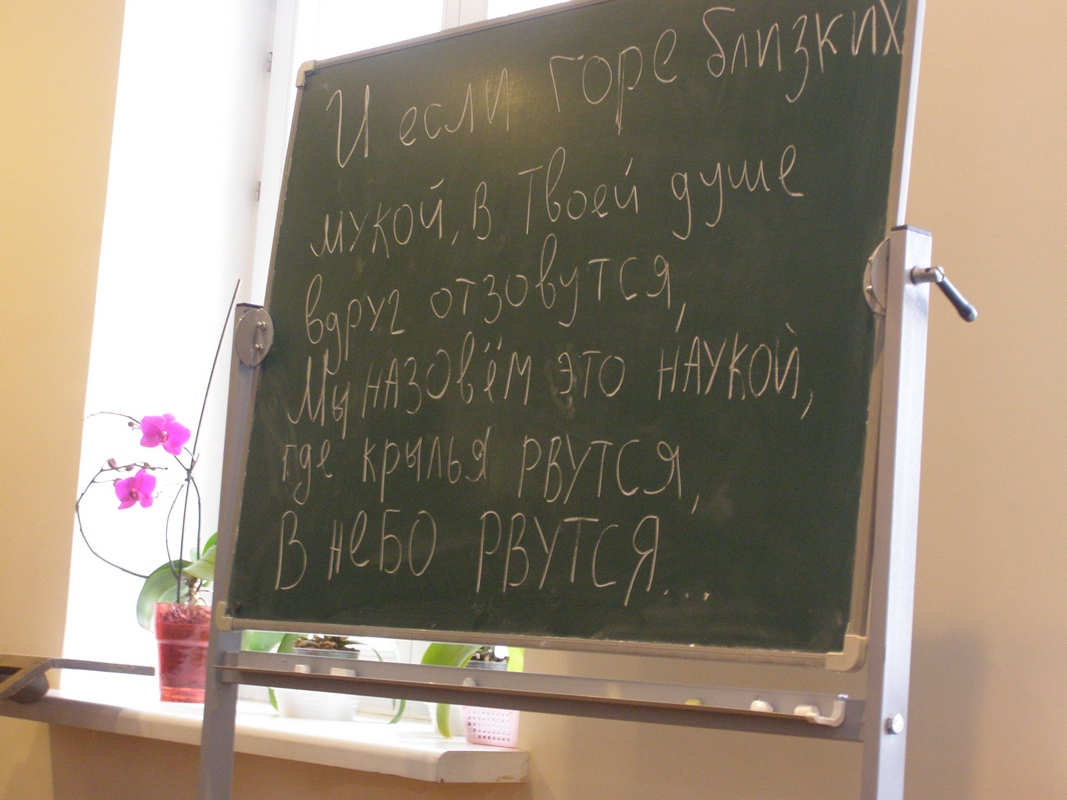 И если горе близких
мукой, в Твоей душе
вдруг отзовутся,
Мы назовём это наукой,
где крылья рвутся,
В небо рвутся...